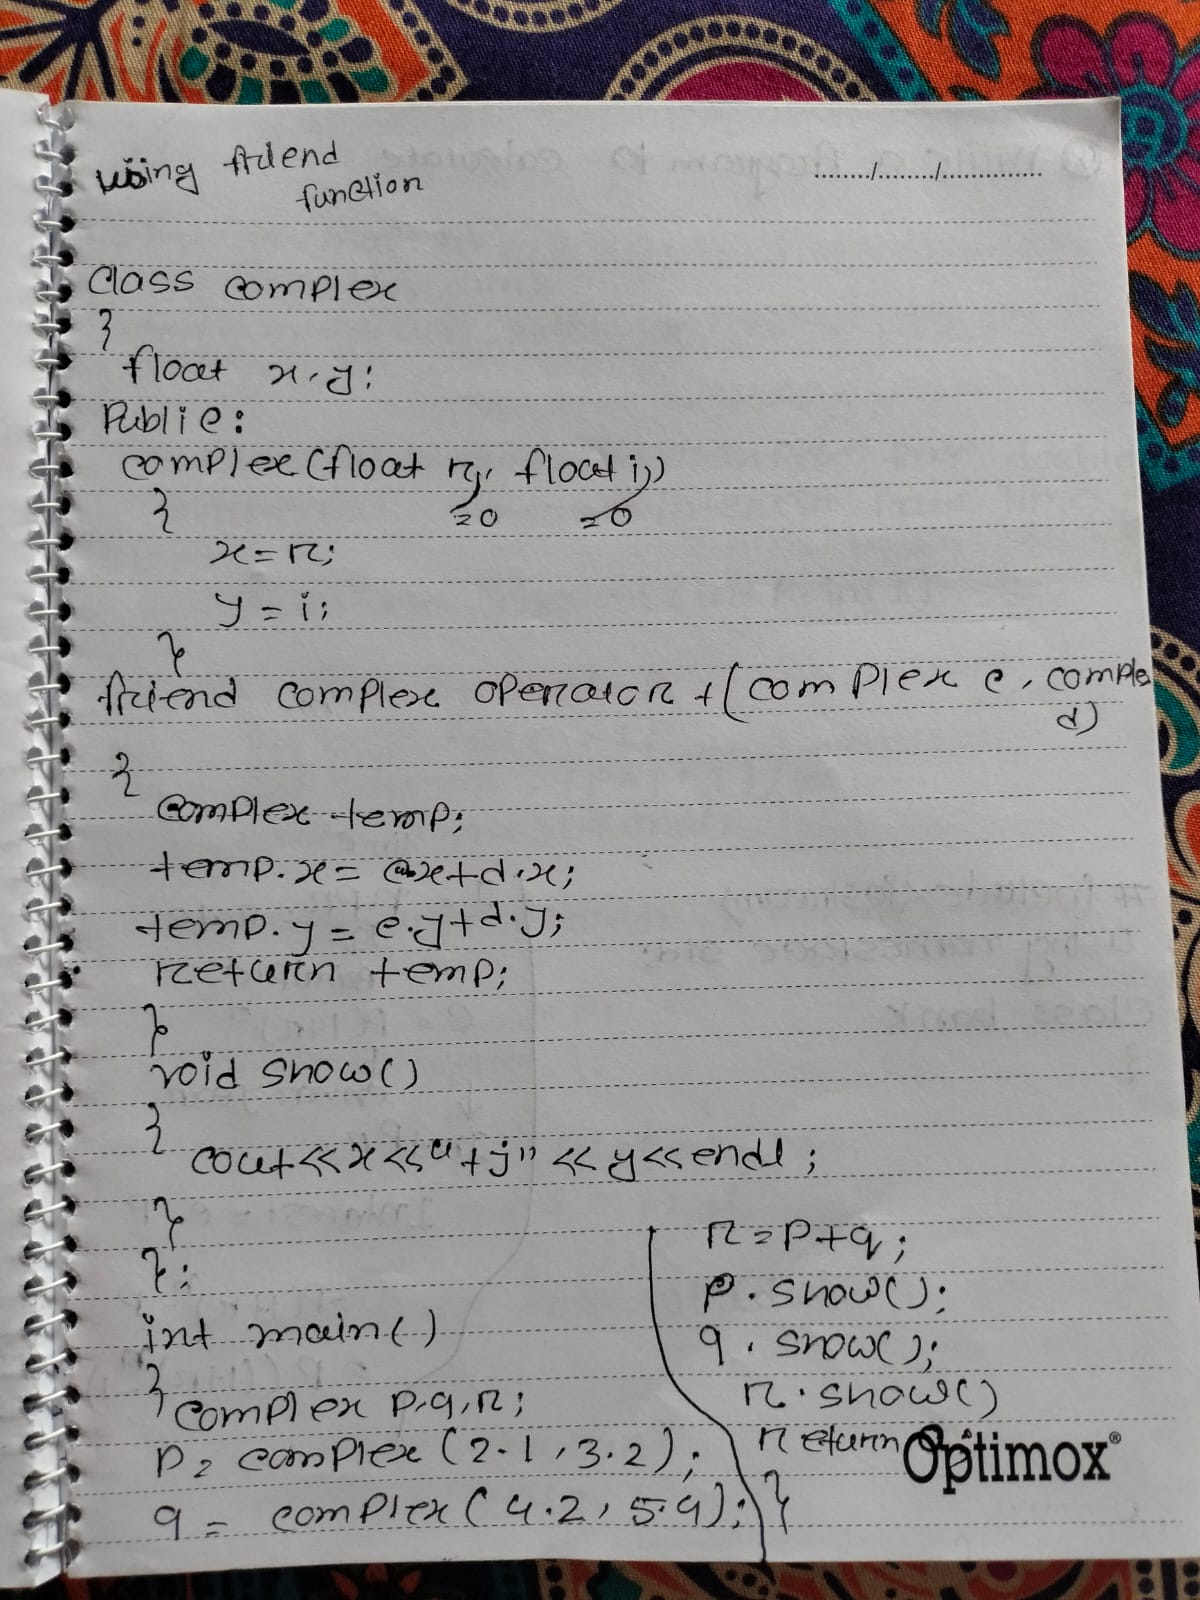 using friend
function
......../......../..............
class complex
{
float x, y;
Public:
complex(float r, float i)
=0 =0
{
x=r;
y = i;
}
friend complex operator + (complex c, complex
d)
{
complex temp;
temp.x = c.x+d.x;
temp.y = c.y+d.y;
return temp;
}
void show()
{
cout<<x<<"+j"<<y<<endl;
}
};
int main()
{
complex p,q,r;
p = complex (2.1, 3.2);
q = complex (4.2, 5.4);
r=p+q;
p.show();
q.show();
r.show()
return
}
Optimox®